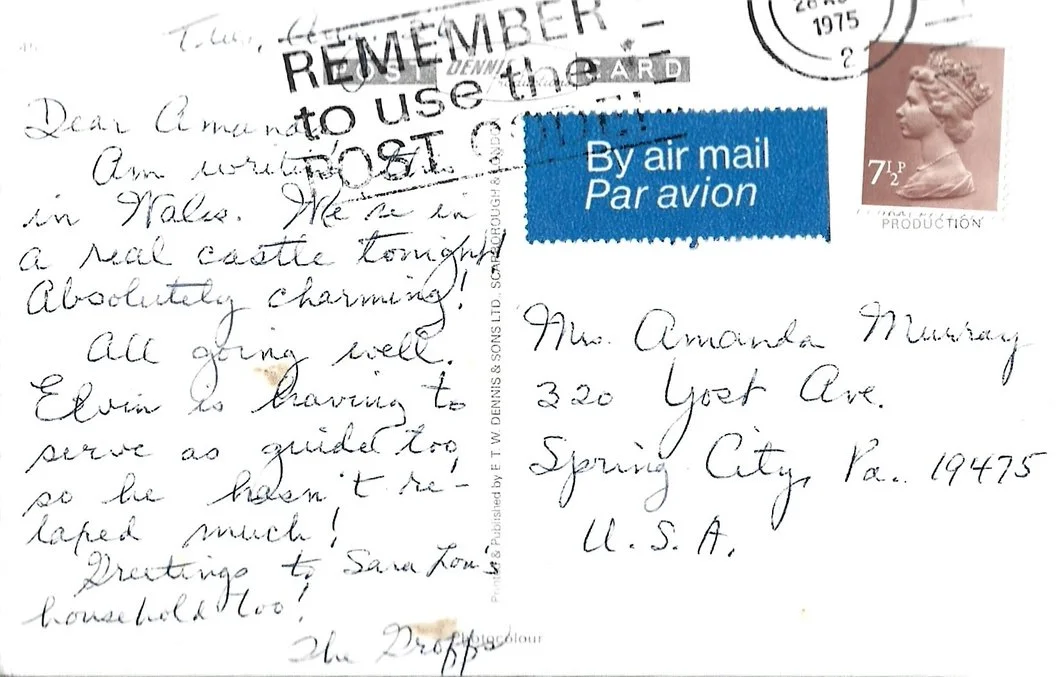 REMEMBER
to use the
POST CODE!
1975
2
POST DENNIS CARD
Productions
By air mail
Par avion
7½P
PRODUCTION
Dear Amanda
Am writing this
in Wales. We're in
a real castle tonight
Absolutely charming!
All going well.
Elvin is having to
serve as guide too
so he hasn't re-
laped much!
Greetings to Sara Lou's
household too!
The Gropps
Printed & Published by E. T. W. DENNIS & SONS LTD. SCARBOROUGH & LONDON
Photocolour
Mrs. Amanda Murray
320 Yost Ave.
Spring City, Pa. 19475
U.S.A.